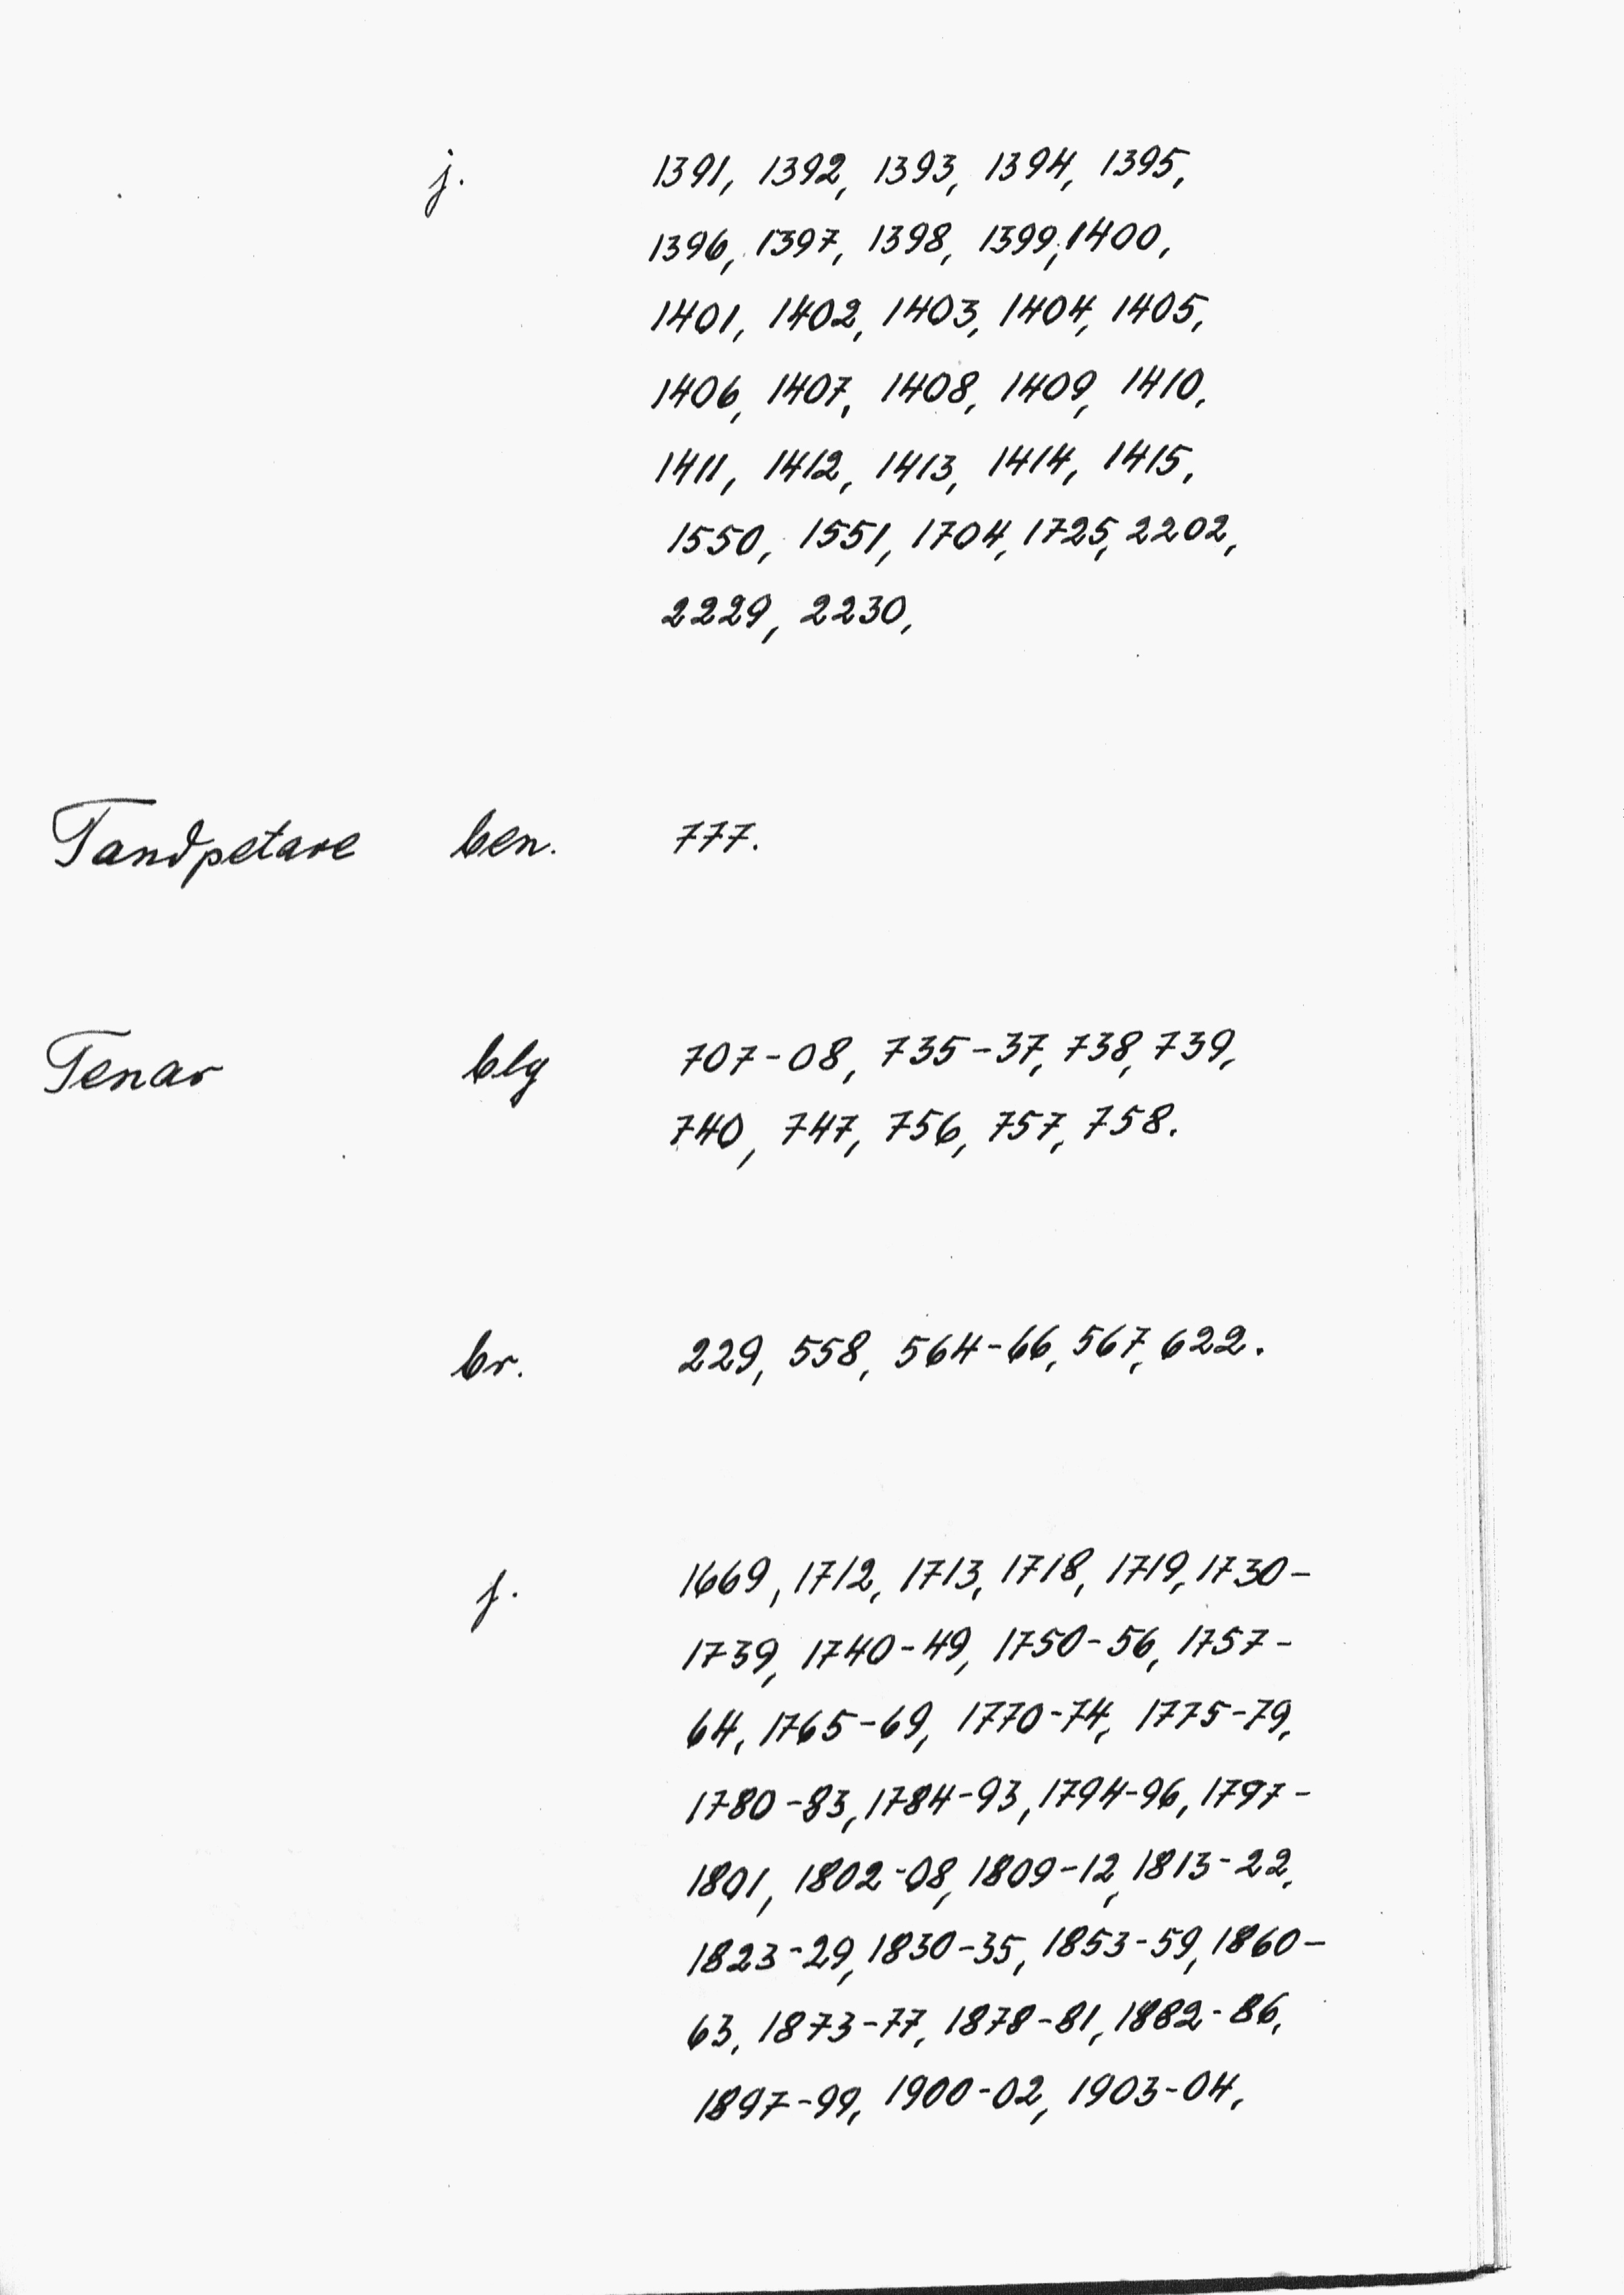 j. 1391, 1392, 1393, 1394, 1395,
1396, 1397, 1398, 1399, 1400,
1401, 1402, 1403, 1404, 1405,
1406, 1407, 1408, 1409, 1410,
1411, 1412, 1413, 1414, 1415,
1550, 1551, 1704, 1725, 2202,
2229, 2230,
Tandpetare ben. 777.
Tenar blg 707-08, 735-37, 738, 739,
740, 747, 756, 757, 758.
br. 229, 558, 564-66, 567, 622.
j. 1669, 1712, 1713, 1718, 1719, 1730-
1739, 1740-49, 1750-56, 1757-
64, 1765-69, 1770-74, 1775-79,
1780-83, 1784-93, 1794-96, 1797-
1801, 1802-08, 1809-12, 1813-22,
1823-29, 1830-35, 1853-59, 1860-
63, 1873-77, 1878-81, 1882-86,
1897-99, 1900-02, 1903-04,